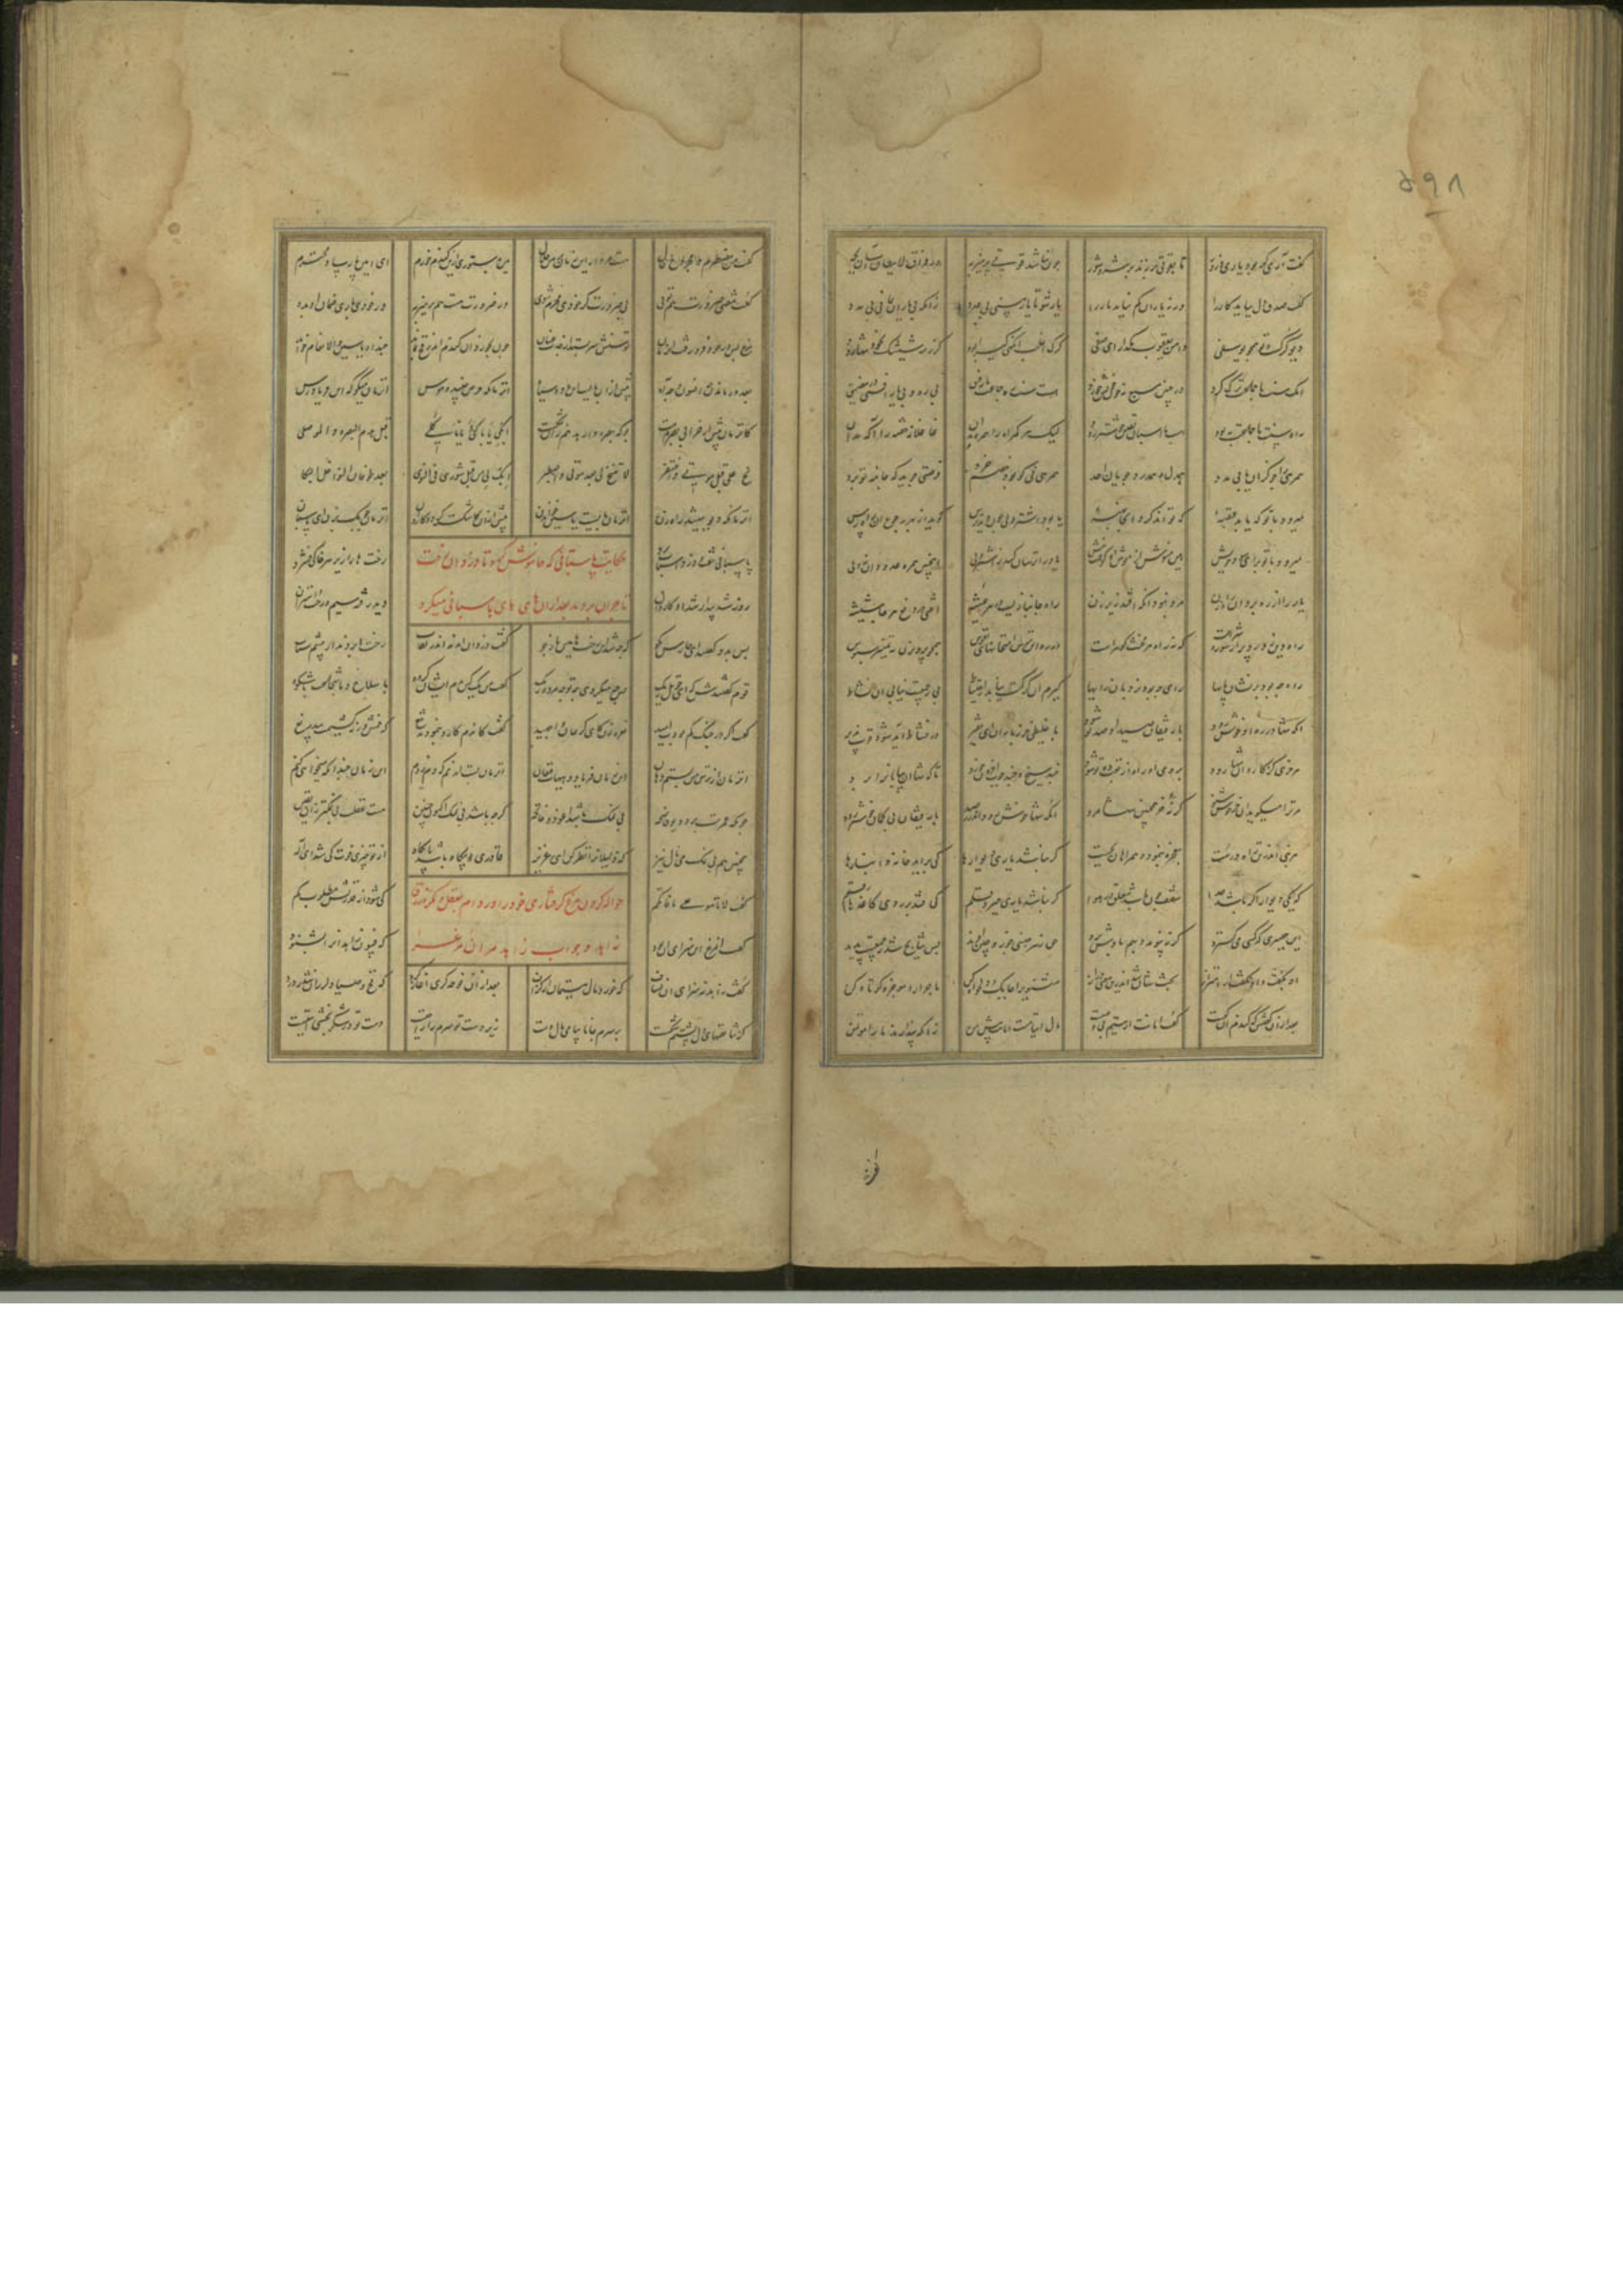 گفت آری گر بود یاری و زور تا بقوت بر زند بر شر و شور چون نباشد قوتی پرهیز به در فرار لا یطاق آسان بجه
گفت صدق دل بباید کار را ورنه یاران کم نیاید یار را یار شو تا یار بینی بی عدد زانکه بی یاران بمانی بی مدد
دیو گرگست و تو همچو یوسفی دامن یعقوب مگذار ای صفی گرگ اغلب آنگهی گیرا بود کز رمه شیشک بخود تنها رود
آنک سنت با جماعت ترک کرد در چنین مسبع نه خون خویش خورد هست سنت ره جماعت چون رفیق بی ره و بی یار افتی در مضیق
راه سنت با جماعت به بود اسب با اسبان یقین خوشتر رود لیک هر گمراه را همره مدان غافلان خفته را آگه مدان
همرهی را جو کزان یابی مدد همدل و همدرد و جویان احد همرهی نی کو بود خصم خرد فرصتی جوید که جامه تو برد
میرود با تو که یابد عقبه که تواند کردت آنجا نهبه یا بود اشتردلی چون دید ترس گوید از بهر رجوع از راه درس
میرود با تو برای سود خویش هین منوش از نوش او یار را ترسان کند ز اشتردلی این چنین همره عدو دان نی ولی
مرد نبود آنکه افتد زیر زن راه جانبازیست در هر عیشه آفتی در دفع هر جان شیشه
راه دین زان رو پر از شور و شرست که نه راه هر مخنث گوهرست در ره این ترس امتحانهای نفوس همچو پرویزن بتمییز سبوس
راه چه بود پر نشان پایها یار چه بود نردبان رایها گیرم آن گرگت نیابد ز احتیاط بی ز جمعیت نیابی آن نشاط
آنکه تنها در رهی او خوش رود با رفیقان سیر او صدتو شود با غلیظی خر ز یاران ای فقیر در نشاط آید شود قوت پذیر
هر خری کز کاروان تنها رود بر وی آن راه از تعب صدتو شود چند سیخ و چند چوب افزون خورد تا که تنها آن بیابان را برد
مر ترا میگوید آن خر خوش شنو گر نه خر همچنین تنها مرو آنکه تنها خوش رود اندر رصد با رفیقان بی گمان خوشتر رود
هر نبی اندرین راه درست معجزه بنمود و همراهان بجست گر نباشد یاری دیوارها کی برآید خانه و انبارها
هر یکی دیوار اگر باشد جدا سقف چون باشد معلق در هوا گر نباشد یاری حبر و قلم کی فتد بر روی کاغذها رقم
این حصیری که کسی می گسترد گر نپیوندد بهم بادش برد حق ز هر جنسی چو زوجین آفرید پس نتایج شد ز جمعیت پدید
او بگفت و او بگفت از اهتزاز بحثشان شد اندرین معنی دراز مثنوی را چابک و دلخواه کن ماجرا را موجز و کوتاه کن
بعد از آن گفتش که گندم آن کیست گفت امانت از یتیم بی وصیست مال ایتامست امانت پیش من زانکه پندارند ما را مؤتمن
گفت من مضطرم و مجروح حال هست مردار این زمان بر من حلال هین بدستوری ازین گندم خورم ای امین و پارسا و محترم
گفت مفتی ضرورت هم توی بی ضرورت گر خوری مجرم شوی ور ضرورت هست هم پرهیز به ور خوری باری ضمان آن بده
مرغ بس در خود فرو رفت آن زمان توسنش سر بستد از جذب عنان چون بخورد آن گندم اندر فخ بماند چند او یاسین و الانعام خواند
بعد در ماندن چه افسوس و چه آه پیش از آن بایست این دود سیاه آن زمان که حرص جنبید و هوس آن زمان میگو که ای فریادرس
کان زمان پیش از خرابی بصره است بوکه بصره وارهد هم زان شکست ابک لی یا باکیی یا ثاکلی قبل هدم البصره و الموصل
نح علی قبل موتی و اغتفر لا تنح لی بعد موتی و اصطبر ابک لی قبل ثبوری فی النوی بعد طوفان النوی خل البکا
آن زمان که دیو میشد راه زن آن زمان بایست یاسین خواندن پیش از آن کاشکسته گردد کاروان آن زمان چوبک بزن ای پاسبان
حکایت پاسبانی که خاموش کرد تا دزدان رخت
تاجران بردند بعد از آن های های پاسبانی میکرد
پاسبانی خفت و دزد اسباب برد رخت ها را زیر هر خاکی فشرد
روز شد بیدار شد آن کاروان دید رفته رخت و سیم و اشتران
پس بدو گفتند ای حارس بگو که چه شد این رخت و این اسباب کو گفت دزدان آمدند اندر نقاب رخت ها بردند از پیشم شتاب
قوم گفتندش که ای چو تل ریگ پس چه میکردی چه مرده ریگ گفت من یک کس بدم ایشان گروه با سلاح و با شجاعت با شکوه
گفت اگر در جنگ کم بودت امید نعره زن کای کریمان برجهید گفت آن دم کارد بنمودند و تیغ که خمش ورنه کشیمت بی دریغ
آن زمان از ترس من بستم دهان این زمان فریاد و هیهای و فغان آن زمان بست آن دمم که دم زنم این زمان چندانکه خواهی میکنم
چونکه عمرت برد دیو فاضحه بی نمک باشد اعوذ و فاتحه گرچه باشد بی نمک اکنون حنین هست غفلت بی نمکتر زان یقین
همچنین هم بی نمک می نال نیز که ذلیلان را نظر کن ای عزیز قادری بیگاه باشد یا بگاه از تو چیزی فوت کی شد ای اله
حواله کردن مرغ گرفتاری خود را در دام بفعل و مکر و زرق
زاهد و جواب زاهد مر آن مرغ را
گفت لا تاسوا علی ما فاتکم کی شود از قدرتش مطلوب گم
گفت آن مرغ این سزای او بود که فسون زاهدان را بشنود
گفت زاهد نه سزای آن نشاف که خورد مال یتیمان از گزاف بعد از آن نوحه گری آغاز کرد که فخ و صیاد لرزان شد ز درد
کز تناقضهای دل پشتم شکست بر سرم جانا بیا می مال دست زیر دست تو سرم را راحتیست دست تو در شکر بخشی آیتیست